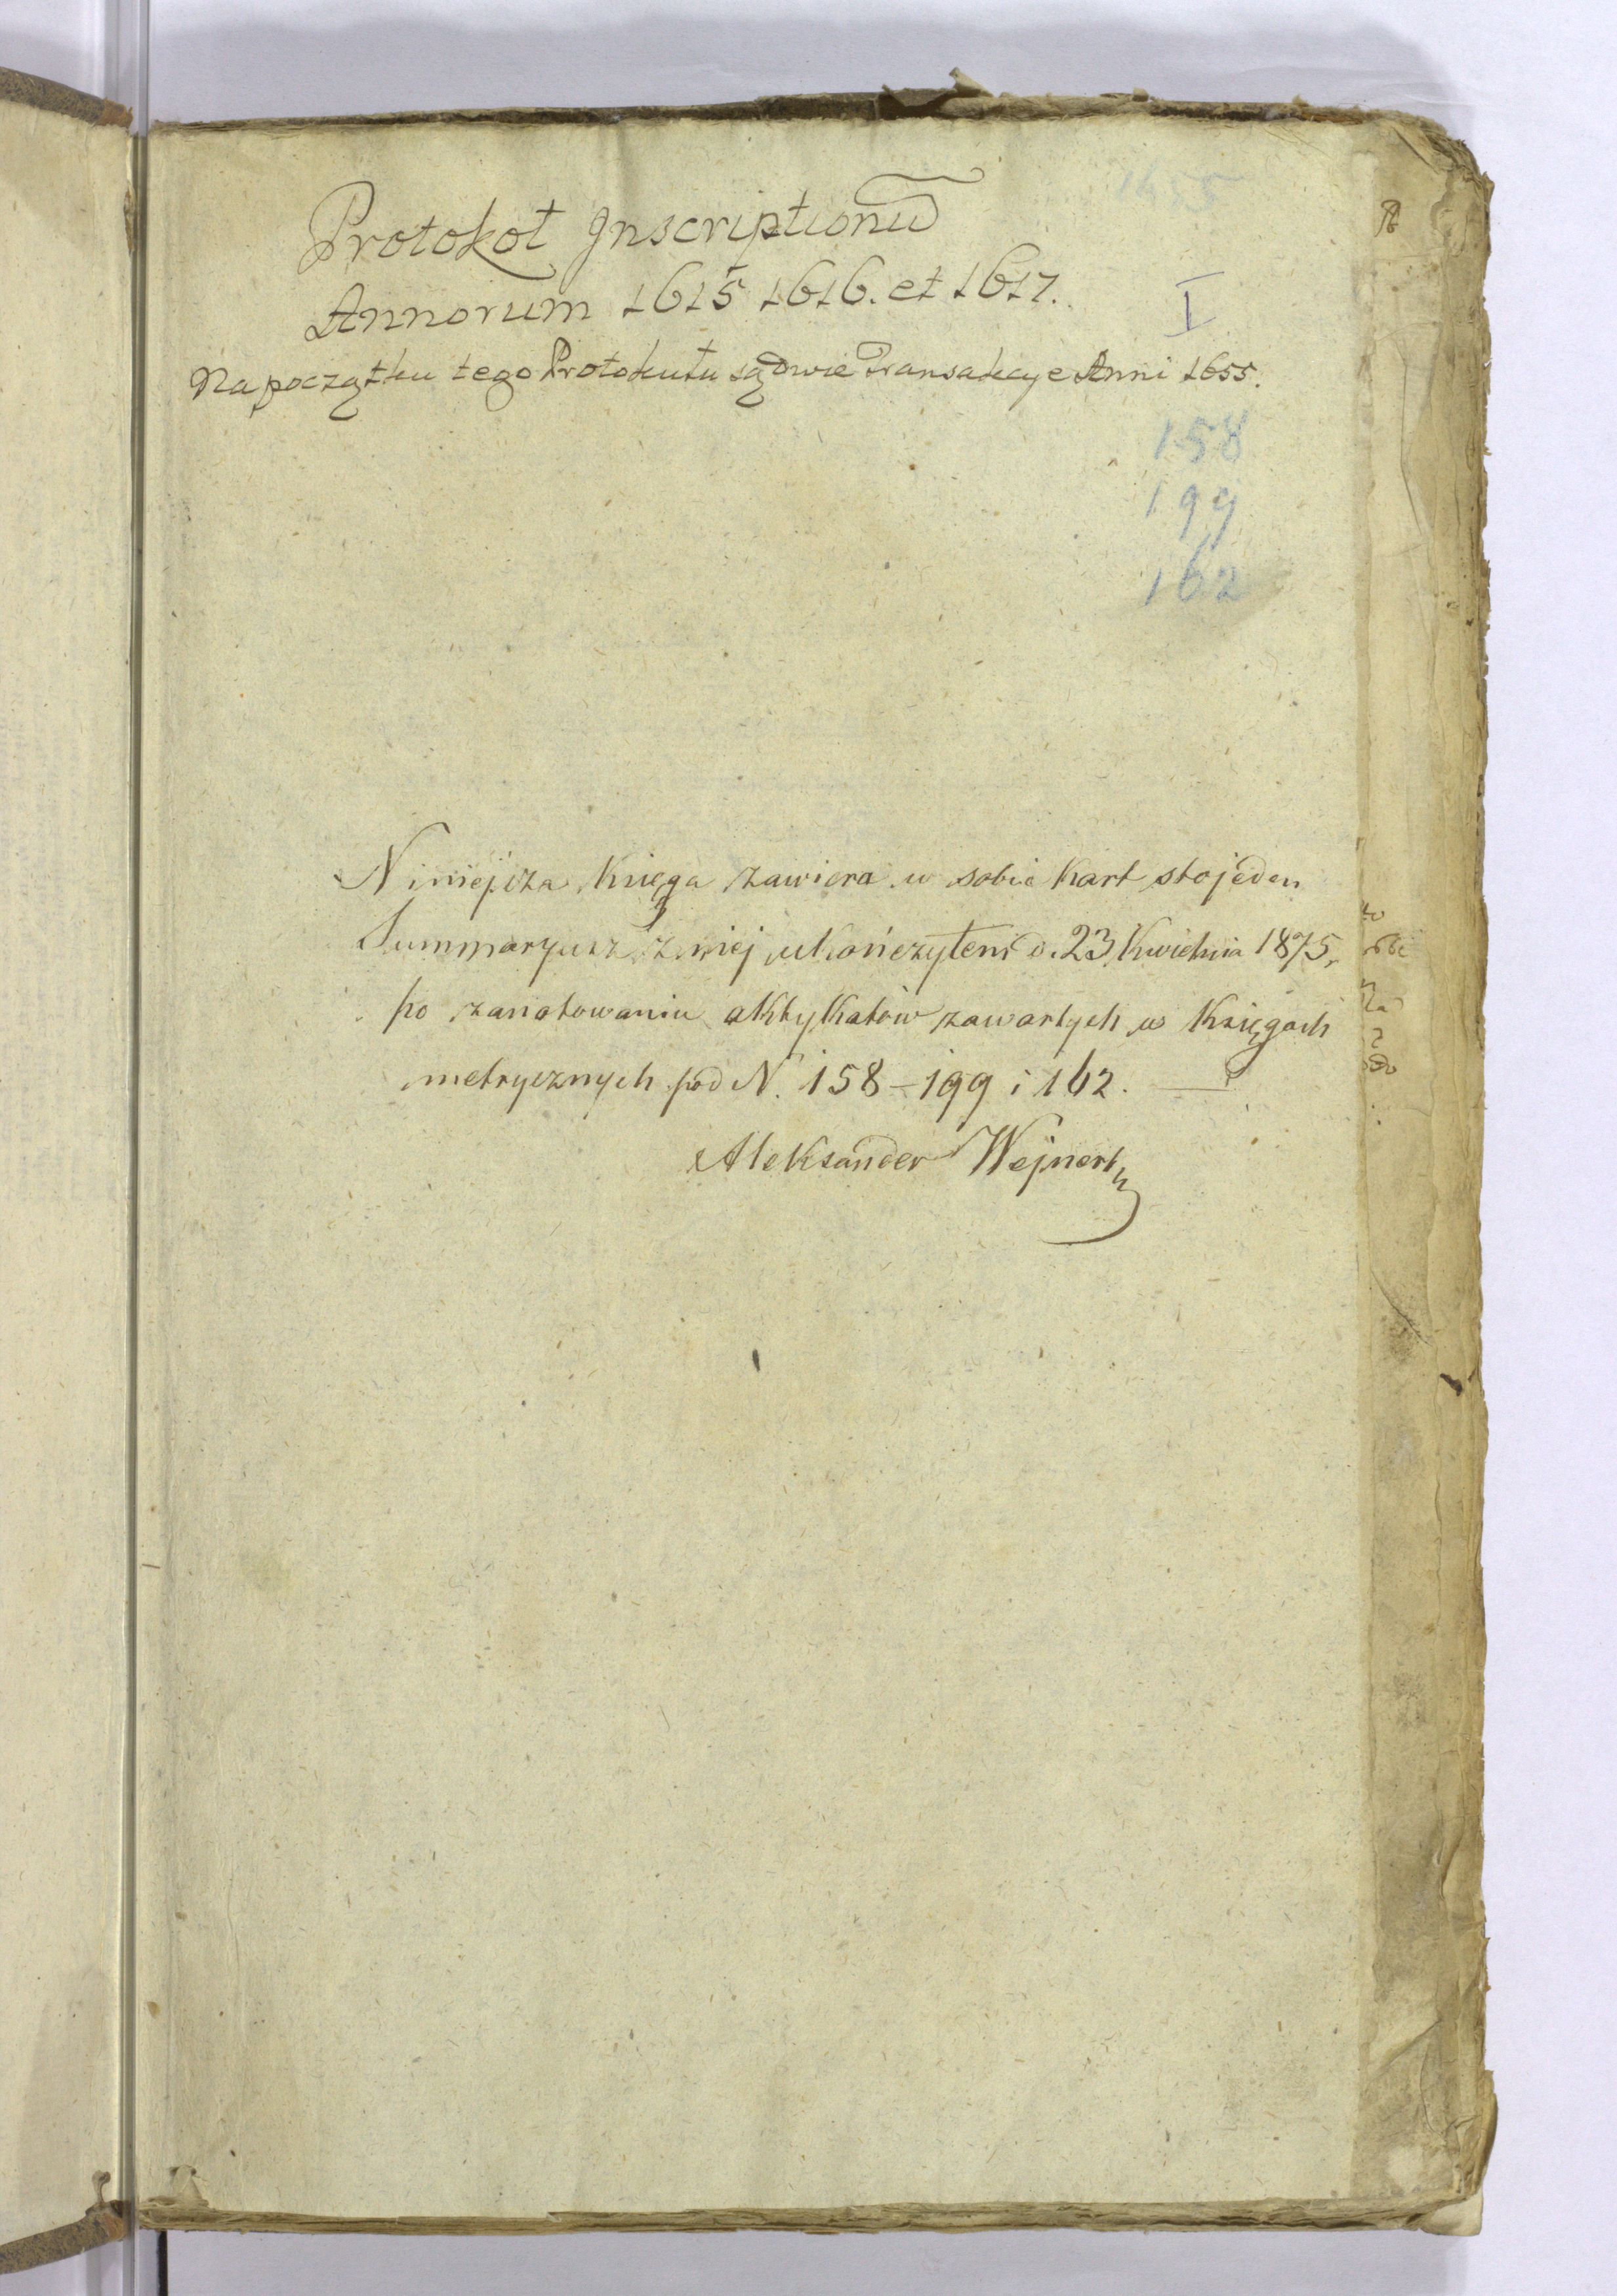 1655
Protokoł Inscriptionū
Annorum 1615 1616. et 1617.
I
Na początku tego Protokułu są dwie Transakcye Anni 1655.
158
199
162
Niniejsza Księga zawiera w sobie Kart sto jeden
Summaryusz z niej ukończyłem d. 23 Kwietnia 1875,
po zanotowaniu aktykatów zawartych w Księgach
metrycznych pod N. 158 – 199 i 162. —
Aleksander Wejnert